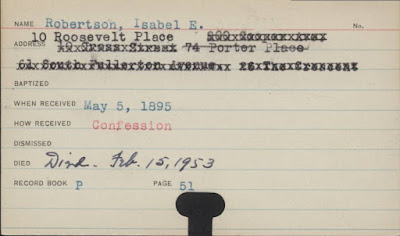 NAME Robertson, Isabel E. No.
10 Roosevelt Place
ADDRESS 19 Grove Street 74 Porter Place
61 South Fullerton Avenue 26 The Crescent
BAPTIZED
WHEN RECEIVED May 5, 1895
HOW RECEIVED Confession
DISMISSED
DIED Died. Feb. 15, 1953
RECORD BOOK P PAGE 51